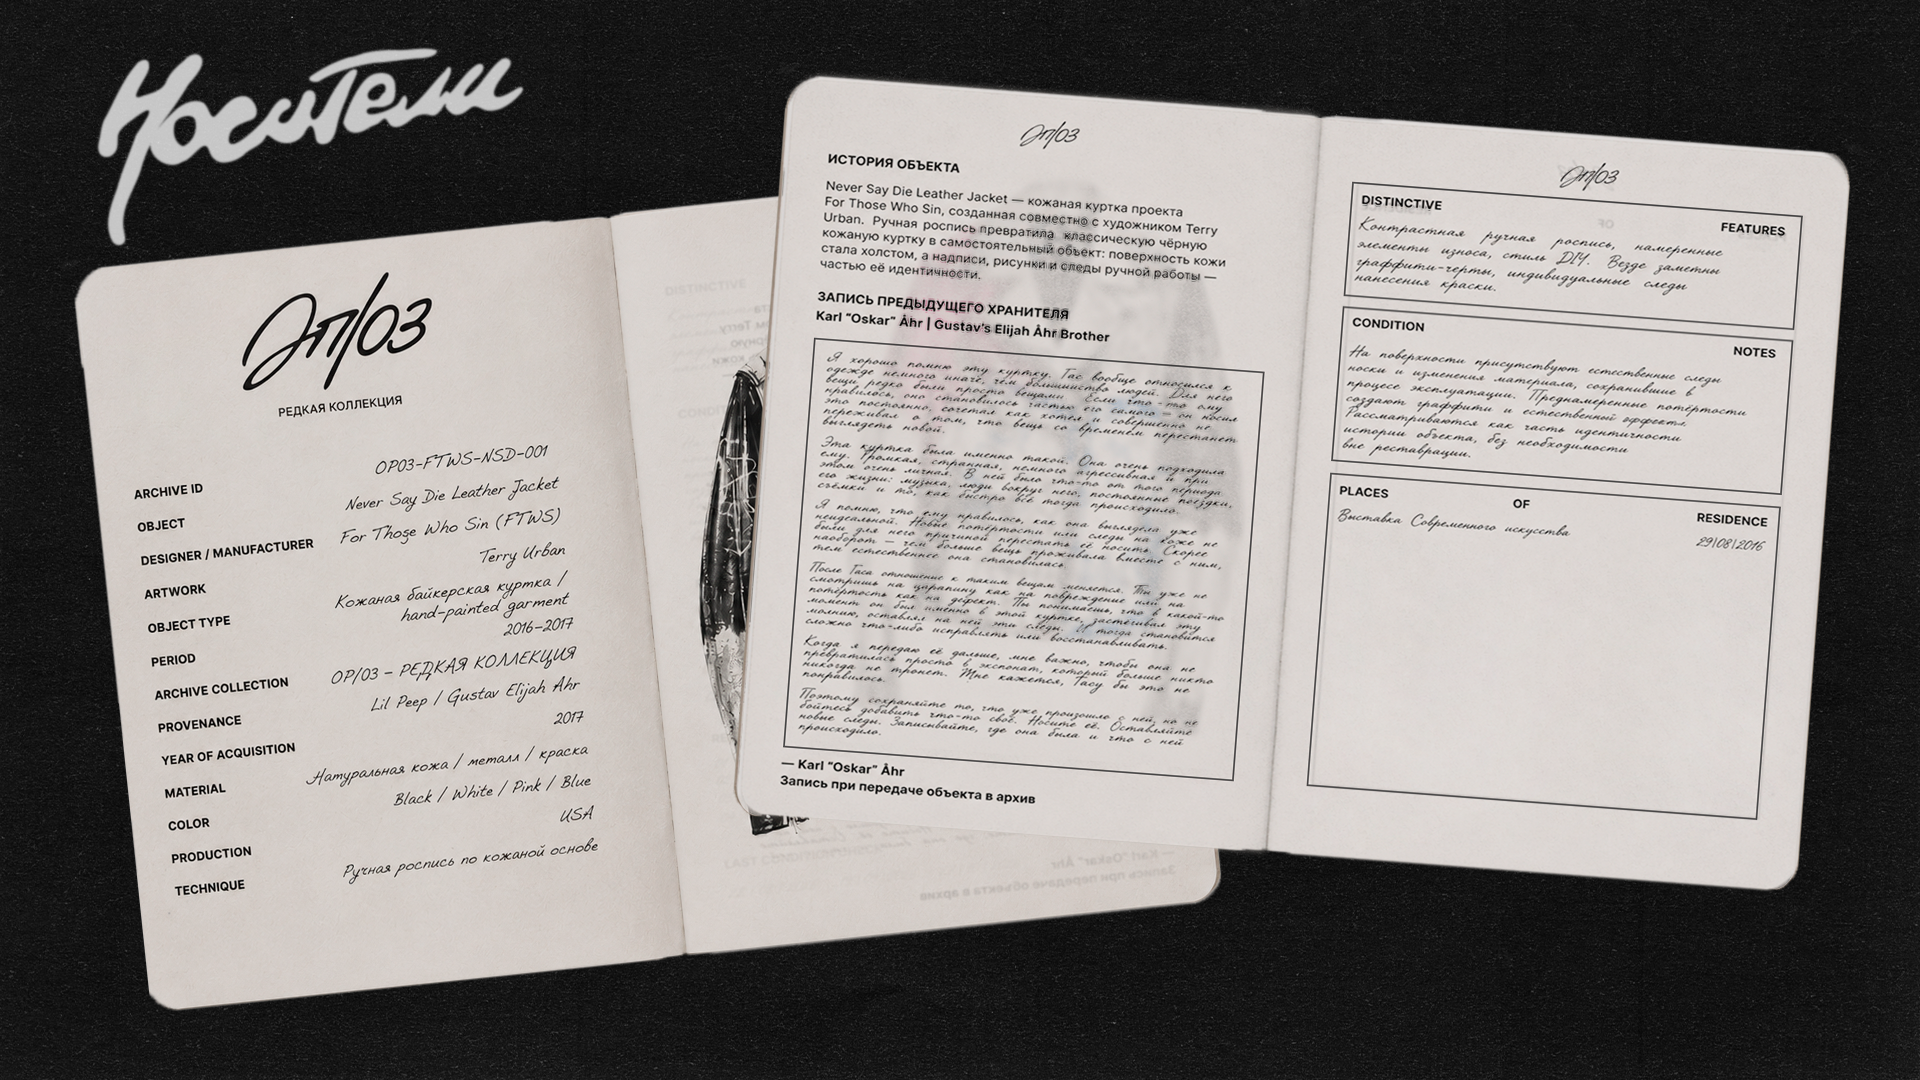 Носители
Эп/03
РЕДКАЯ КОЛЛЕКЦИЯ
ARCHIVE ID
OP03-FTWS-NSD-001
OBJECT
Never Say Die Leather Jacket
DESIGNER / MANUFACTURER
For Those Who Sin (FTWS)
ARTWORK
Terry Urban
OBJECT TYPE
Кожаная байкерская куртка /
hand-painted garment
PERIOD
2016–2017
ARCHIVE COLLECTION
OP/03 – РЕДКАЯ КОЛЛЕКЦИЯ
PROVENANCE
Lil Peep / Gustav Elijah Åhr
YEAR OF ACQUISITION
2017
MATERIAL
Натуральная кожа / металл / краска
COLOR
Black / White / Pink / Blue
PRODUCTION
USA
TECHNIQUE
Ручная роспись по кожаной основе
ИСТОРИЯ ОБЪЕКТА
Never Say Die Leather Jacket — кожаная куртка проекта
For Those Who Sin, созданная совместно с художником Terry
Urban. Ручная роспись превратила классическую чёрную
кожаную куртку в самостоятельный объект: поверхность кожи
стала холстом, а надписи, рисунки и следы ручной работы —
частью её идентичности.
ЗАПИСЬ ПРЕДЫДУЩЕГО ХРАНИТЕЛЯ
Karl “Oskar” Åhr | Gustav's Elijah Åhr Brother
Я хорошо помню эту куртку. Гас вообще относился к
одежде немного иначе, чем большинство людей. Для него
вещи редко были просто вещами. Если что-то ему
нравилось, оно становилось частью его самого — он носил
это постоянно, сочетал как хотел и совершенно не
переживал о том, что вещь со временем перестанет
выглядеть новой.
Эта куртка была именно такой. Она очень подходила
ему. Громкая, странная, немного агрессивная и при
этом очень личная. В ней было что-то от того периода
его жизни: музыка, люди вокруг него, постоянные поездки,
съёмки и то, как быстро всё тогда происходило.
Я помню, что ему нравилось, как она выглядела уже
неидеальной. Новые потёртости или следы на коже не
были для него причиной перестать её носить. Скорее
наоборот — чем больше вещь проживала вместе с ним,
тем естественнее она становилась.
После Гаса отношение к таким вещам меняется. Ты уже не
смотришь на царапину как на повреждение или на
потёртость как на дефект. Ты понимаешь, что в какой-то
момент он был именно в этой куртке, застёгивал эту
молнию, оставлял на ней эти следы. И тогда становится
сложно что-либо исправлять или восстанавливать.
Когда я передаю её дальше, мне важно, чтобы она не
превратилась просто в экспонат, который больше никто
никогда не тронет. Мне кажется, Гасу бы это не
понравилось.
Поэтому сохраняйте то, что уже произошло с ней, но не
бойтесь добавить что-то своё. Носите её. Оставляйте
новые следы. Записывайте, где она была и что с ней
происходило.
— Karl “Oskar” Åhr
Запись при передаче объекта в архив
Эп/03
DISTINCTIVE FEATURES
Контрастная ручная роспись, намеренные
элементы износа, стиль DIY. Везде заметны
граффити-черты, индивидуальные следы
нанесения краски.
CONDITION NOTES
На поверхности присутствуют естественные следы
носки и изменения материала, сохранившие в
процессе эксплуатации. Преднамеренные потёртости
создают граффити и естественный эффект.
Рассматриваются как часть идентичности
истории объекта, без необходимости
вне реставрации.
PLACES OF RESIDENCE
Выставка Современного искусства
29|08|2016